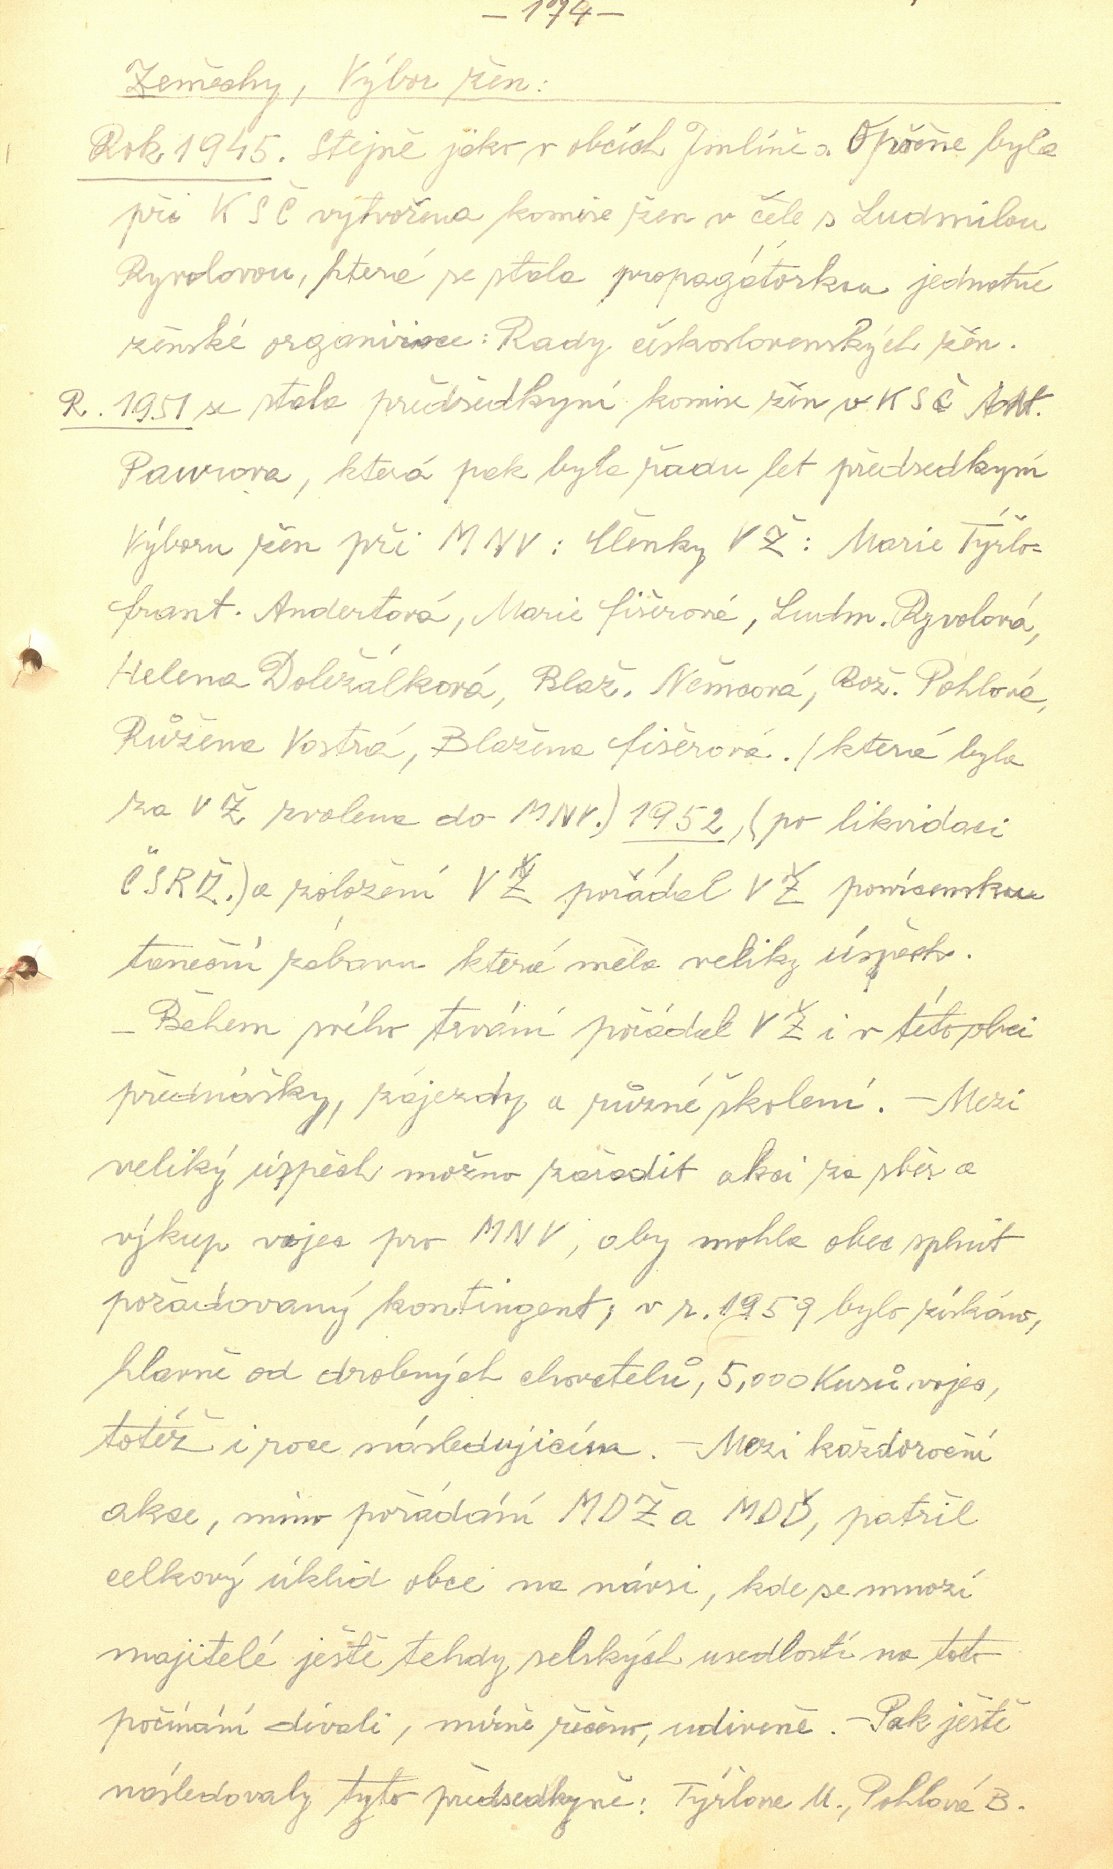 – 174 –
Zeměchy, Výbor žen:
Rok 1945. Stejně jako v obcích Jimlíně a Opočně byla
při KSČ vytvořena komise žen v čele s Ludmilou
Ryvolovou, která se stala propagátorkou jednotné
ženské organizace: Rady československých žen.
R. 1951 se stala předsedkyní komise žen v KSČ Ant.
která pak byla řadu let předsedkyní
Výboru žen při MNV: Členky VŽ: Marie Týrlo=
Frant. Andertová, Marie Fišerová, Ludm. Ryvolová,
Helena Doležálková, Blaž. Němcová, Bož. Pohlová,
Růžena Vostrá, Blažena Fišerová. (která byla
za VŽ zvolena do MNV.) 1952, (po likvidaci
ČSRŽ.) a založení VŽ pořádal VŽ posvícenskou
taneční zábavu která měla veliký úspěch.
– Během svého trvání pořádal VŽ i v této obci
přednášky, zájezdy a různé školení. – Mezi
veliký úspěch možno zařadit akci za sběr a
výkup vajec pro MNV, aby mohla obec splnit
požadovaný kontingent; v r. 1959 bylo získáno,
hlavně od drobných chovatelů, 5,000 kusů vajec,
totéž i roce následujícím. – Mezi každoroční
akce, mimo pořádání MDŽ a MDD, patřil
celkový úklid obce na návsi, kde se mnozí
majitelé ještě tehdy selských usedlostí na toto
počínání dívali, mírně řečeno, udiveně. – Pak ještě
následovaly tyto předsedkyně: Týrlova M., Pohlová B.